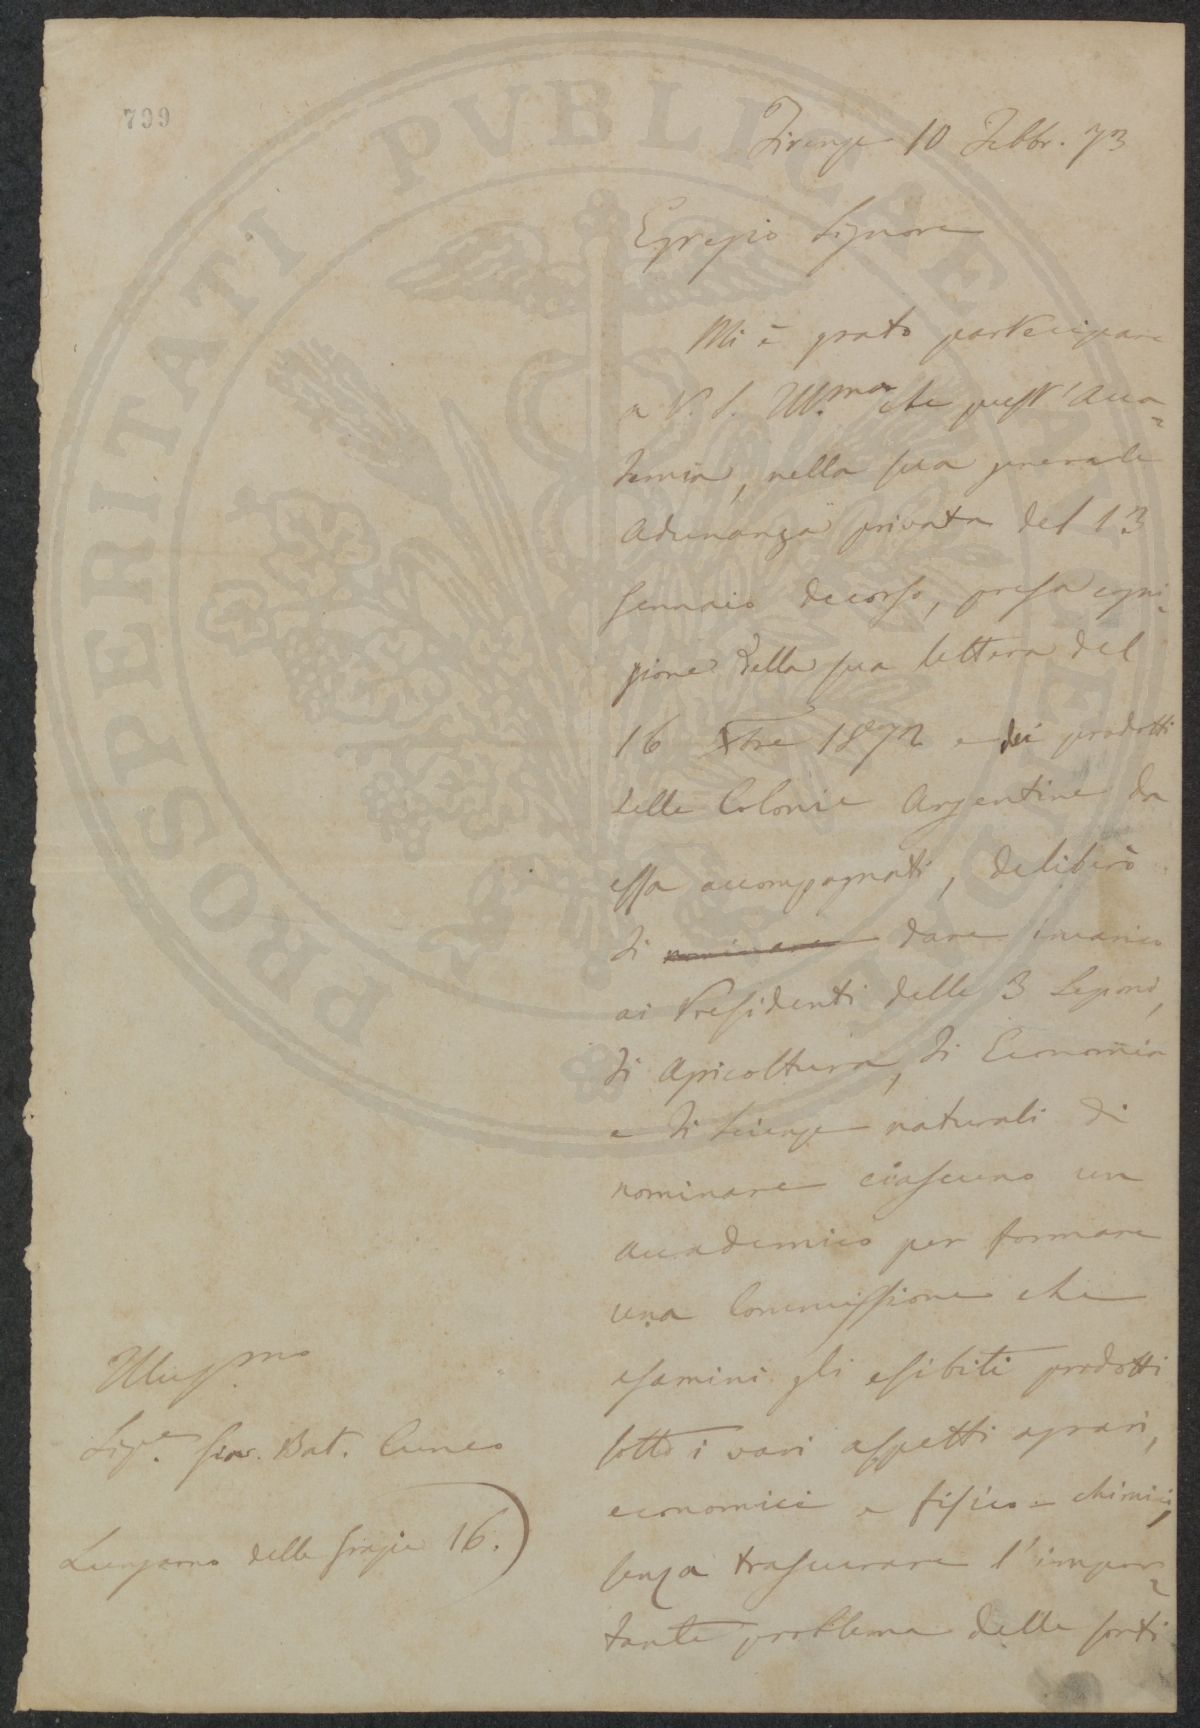 799
Firenze 10 Febbr. 73
Egregio Signore
Mi è grato partecipare
a V. S. Ill.ma che quest'Acca-
demia, nella sua generale
Adunanza privata del 13
Gennaio decorso, presa cogni-
zione della sua lettera del
16 Xbre 1872 e dei prodotti
delle Colonie Argentine da
essa accompagnati, deliberò
di nominare dare incarico
ai Presidenti delle 3 Sezioni,
di Agricoltura, di Economia
e di Scienze naturali di
nominare ciascuno un
accademico per formare
una Commissione che
esamini gli esibiti prodotti
sotto i vari aspetti agrari,
economici e fisico-chimici,
senza trascurare l'impor-
tante problema delle sorti
Illus.mo
Sig.e Giov. Bat. Cuneo
Lungarno delle Grazie 16.)
PROSPERITATI PVBLICAE AVGENDAE